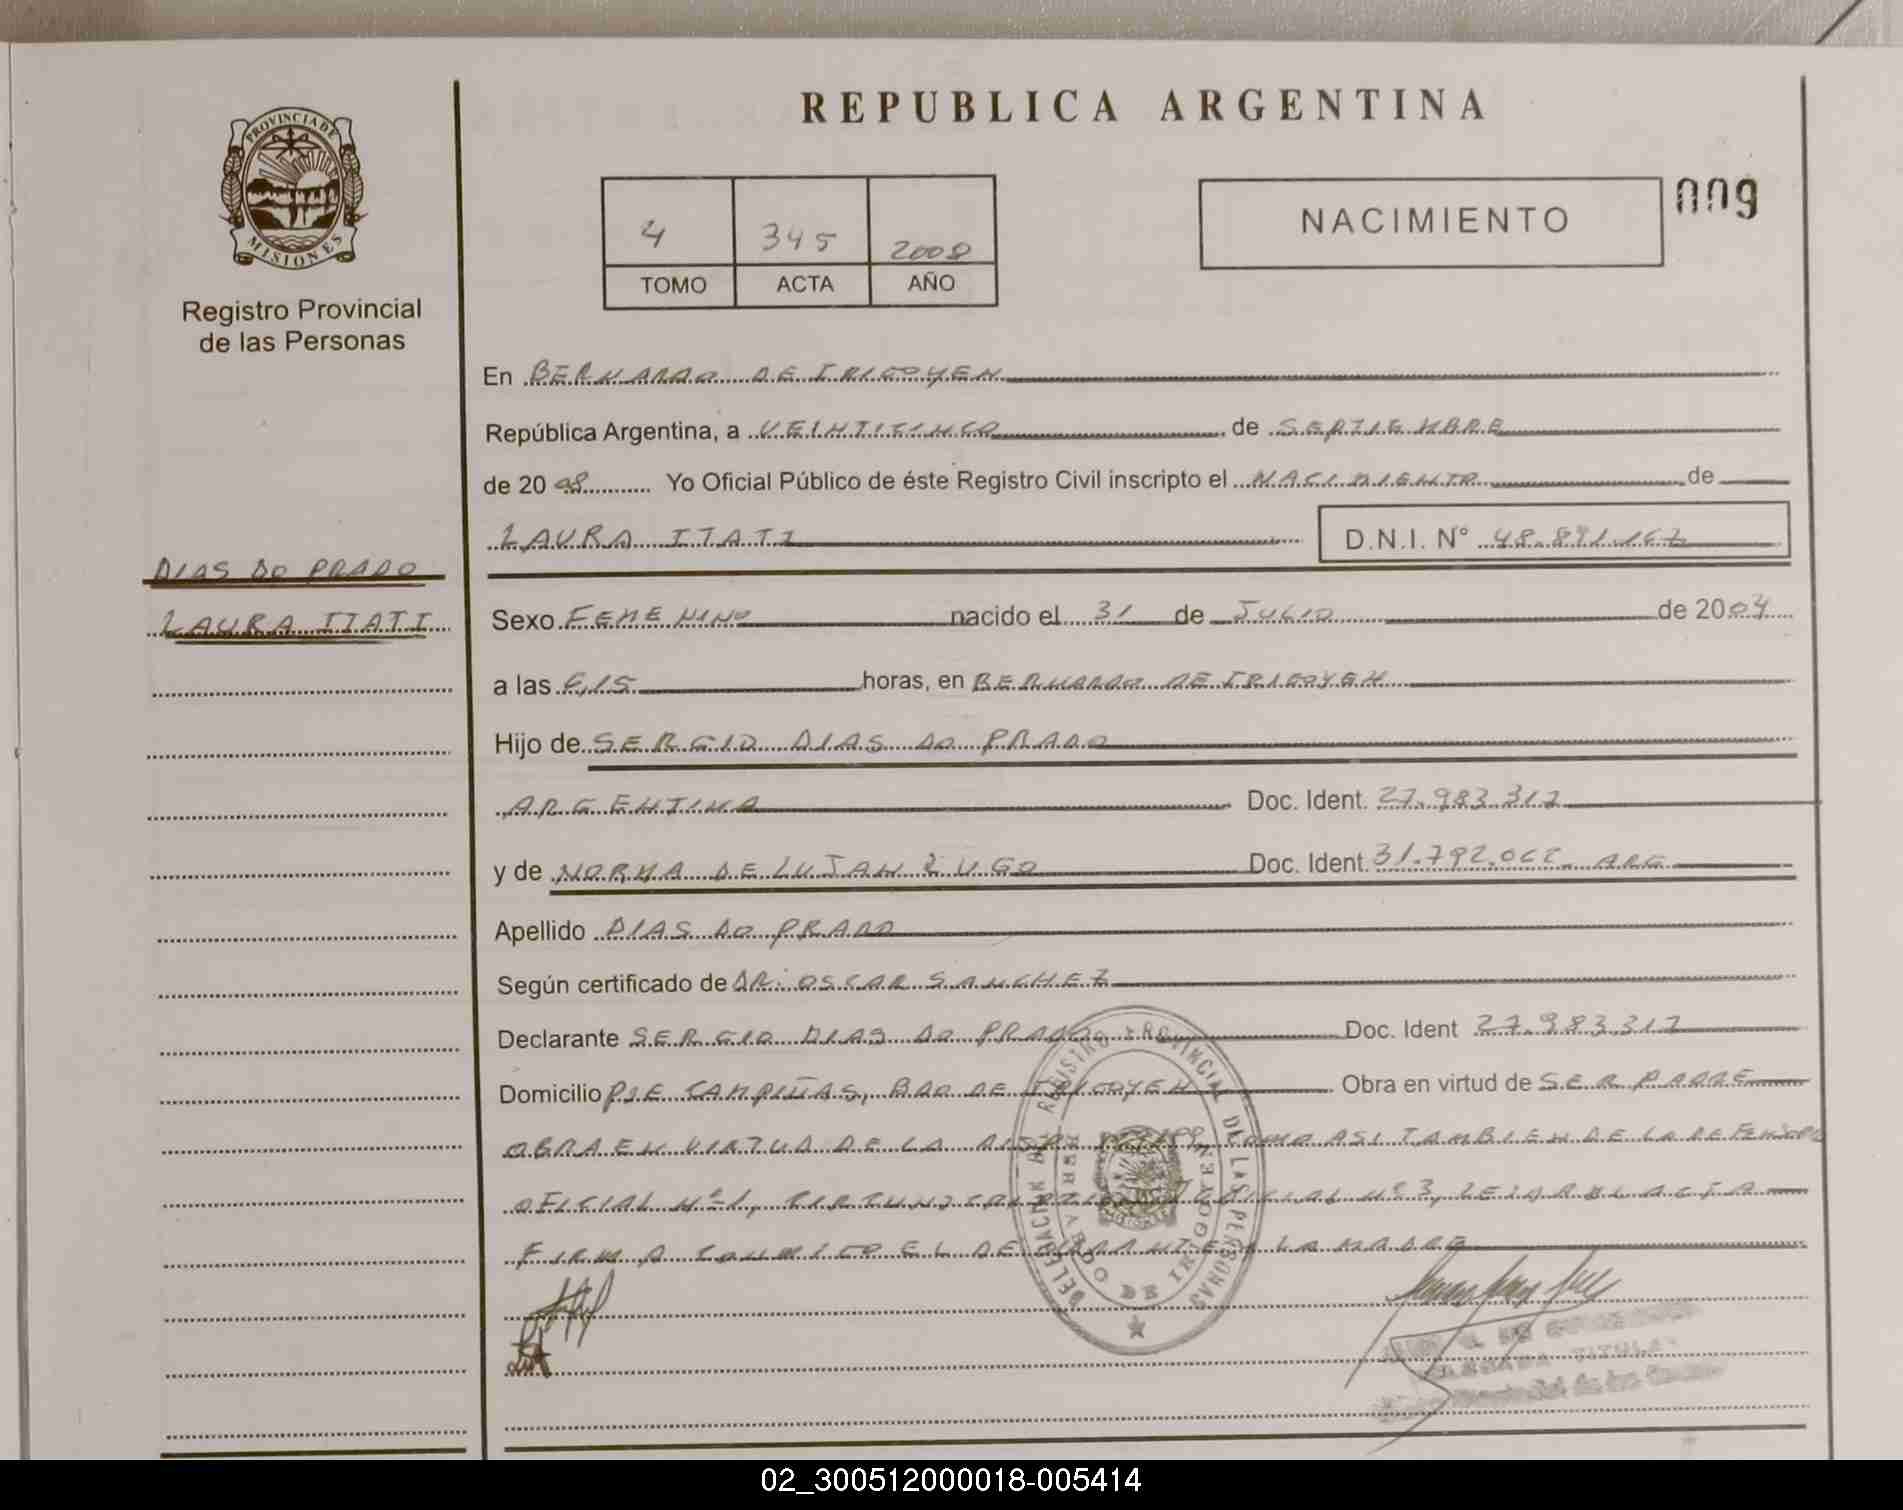 REPUBLICA ARGENTINA
PROVINCIA DE
MISIONES
Registro Provincial
de las Personas
4 345 2008
TOMO ACTA AÑO
NACIMIENTO
009
En BERNARDO DE IRIGOYEN
República Argentina, a VEINTICINCO de SEPTIEMBRE
de 2008 Yo Oficial Público de éste Registro Civil inscripto el NACIMIENTO de
LAURA ITATI D.N.I. N° 48.891.167
DIAS DO PRADO
LAURA ITATI
Sexo FEMENINO nacido el 31 de JULIO de 2004
a las 6,15 horas, en BERNARDO DE IRIGOYEN
Hijo de SERGIO DIAS DO PRADO
ARGENTINA Doc. Ident. 27.983.317
y de NORMA DE LUJAN LUGO Doc. Ident. 31.792.062 ARG
Apellido DIAS DO PRADO
Según certificado de DR. OSCAR SANCHEZ
Declarante SERGIO DIAS DO PRADO Doc. Ident 27.983.317
Domicilio PJE CAMPIÑAS, BDO DE IRIGOYEN Obra en virtud de SER PADRE
OBRA EN VIRTUD DE LA COMO ASI TAMBIEN DE LA DEFENSORA
OFICIAL Nº 1, Nº 3, LEIDA EL ACTA
FIRMA CONMIGO EL DECLARANTE Y LA MADRE
DELEGACION DEL REGISTRO PROVINCIAL DE LAS PERSONAS
BERNARDO DE IRIGOYEN
TITULAR
02_300512000018-005414